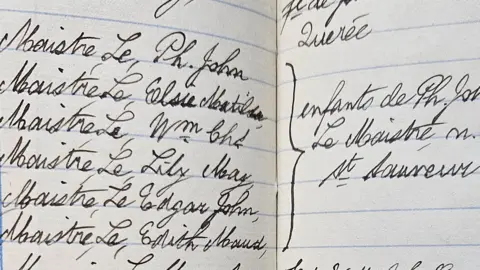 Maistre Le, Ph. John
Maistre Le, Elsie Matilda,
Maistre Le, Wm Chs
Maistre Le Lily May,
Maistre Le Edgar John,
Maistre, Le, Edith Maud,
de
Querée
enfants de Ph. Jo
Le Maistre, n.
St Sauveur